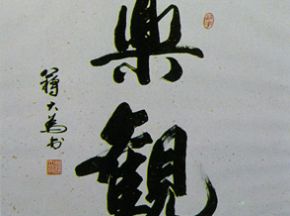 楽観
蔣大為书